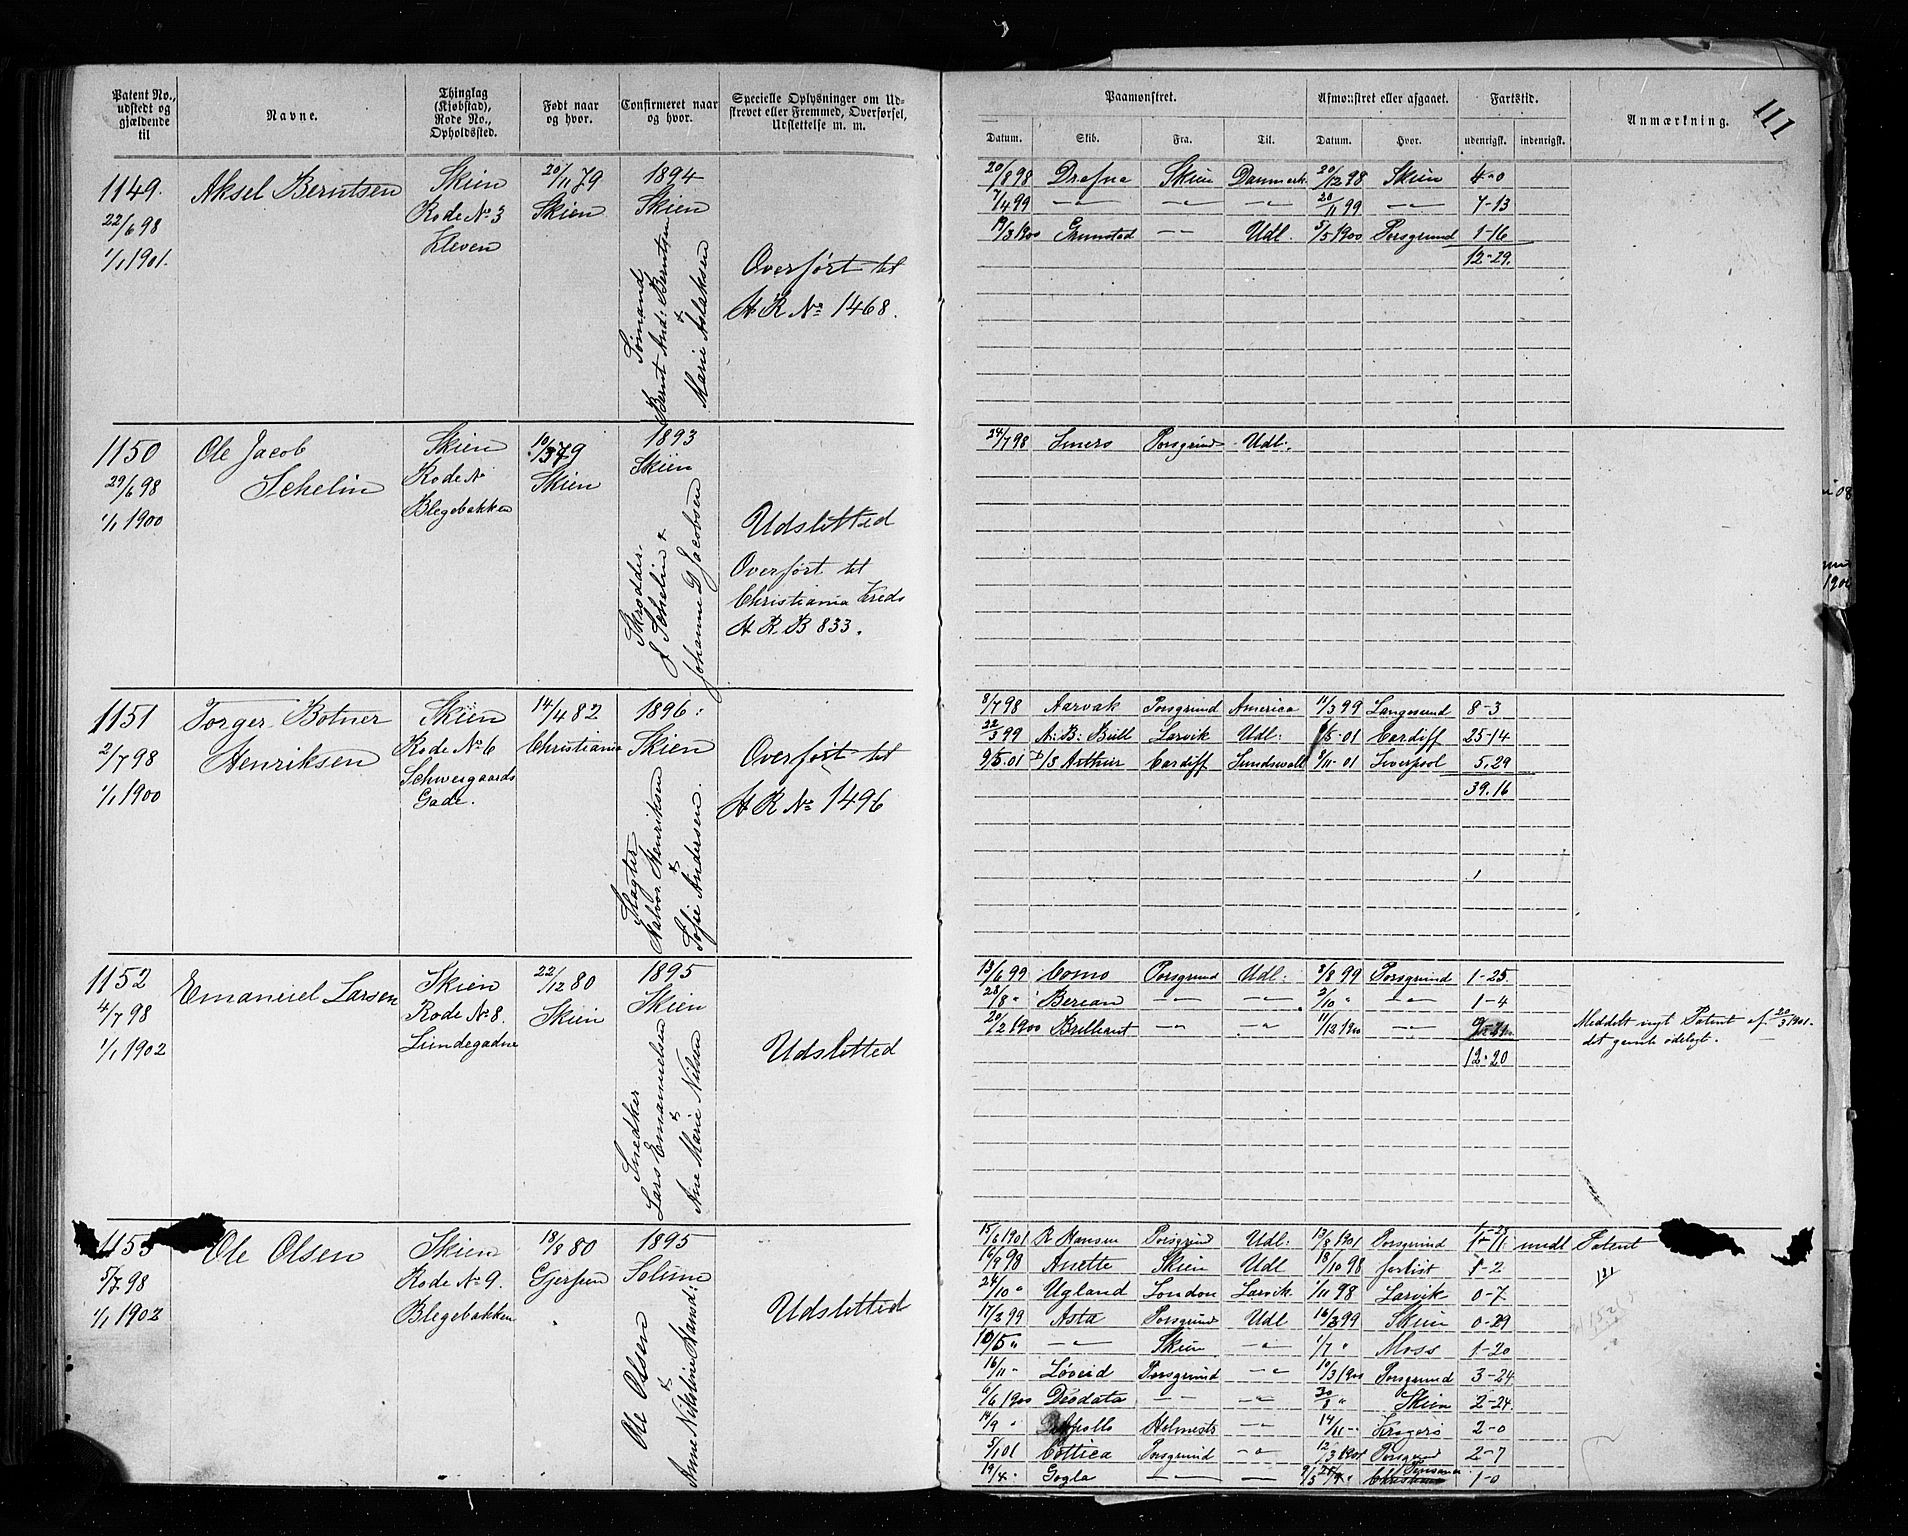 Patent No., udstedt og gjældende til
Navne.
Thinglag (Kjøbstad), Rode No., Opholdssted.
Født naar og hvor.
Confirmeret naar og hvor.
Specielle Oplysninger om Udskrevet eller Fremmed, Overførsel, Udslettelse m. m.
Paamønstret.
Afmønstret eller afgaaet.
Fartstid.
Anmærkning.
111
Datum.
Skib.
Fra.
Til.
Datum.
Hvor.
udenrigsk.
indenrigsk.
1149.
22/6 98
1/1 1901.
Aksel Berntsen
Skien
Rode No 3
Kleven
20/11 79
Skien
1894
Skien
Sømand
Bernt And: Berntsen
&
Marie Aslaksen
Overført til
H R No 1468.
20/8 98 Drafna Skien Danmark 20/12 98 Skien 4-0
7/4 99 — — — 20/11 99 — 7-13
19/3 1900 Grimstad — Udl. 5/5 1900 Porsgrund 1-16
12-29.
1150
29/6 98
1/1 1900
Ole Jacob
Schelin
Skien
Rode No
Blegebakken
10/3 79
Skien
1893
Skien
Skrædder
J Schelin &
Johanne G Jacobsen
Udsletted
Overført til
Christiania Kreds
H R B 833.
24/7 98 Porsgrund Udl.
1151
2/7 98
1/1 1900
Torger Botner
Henriksen
Skien
Rode No 6
Schweigaards
Gade.
14/4 82
Christiania
1896:
Skien
Slagter
Halvor Henriksen
&
Sofie Andersen.
Overført til
H R No 1496
8/7 98 Aarvak Porsgrund America 11/3 99 Langesund 8-3
22/3 99 A. B. Bull Larvik Udl: /5-01 Cardiff 25-14
9/5 01 D/S Arthur Cardiff Sundsvall 8/11-01 Liverpool 5.29
39.16
1152
4/7 98
1/1 1902
Emanuel Larsen
Skien
Rode No 8.
Lundegadne
22/12 80
Skien
1895
Skien
Snedker
Lars Emanuelsen
&
Ane Marie Nilsen
Udsletted
13/6 99 Como Porsgrund Udl: 3/8 99 Porsgrund 1-25
28/8 " Berean — — 2/10 " — 1-4
20/2 1900 Brilliant — — 11/12 1900 — 9-21
12-20
Meddelt nyt Patent af 20/3 1901.
det gamle ødelagt.
1153
5/7 98
1/1 1902
Ole Olsen
Skien
Rode No 9.
Blegebakken
18/8 80
Gjerpen
1895
Solum
Ole Olsen
&
Anne Nilsline Hansd:
Udsletted
15/6 1901 R Hansen Porsgrund Udl: 13/8 1901 Porsgrund 1-28
meddl Patent
14/9 98 Anette Skien Udl 18/10 98 forlist 1-2
24/10 " Ugland London Larvik 1/11 98 Larvik 0-7
17/2 99 Asta Porsgrund Udl 16/3 99 Skien 0-29
10/5 " — Skien — 1/7 " Moss 1-20
16/11 " Løveid Porsgrund — 10/3 1900 Porsgrund 3-24
6/6 1900 Deodata — — 30/8 " Skien 2-24
14/9 " Apollo Holmestr — 14/11 - Kragerø 2-0
5/1 01 Cottica Porsgrund — 12/3 1901 Porsgrund 2-7
19/4 - Gogla — — 1-0